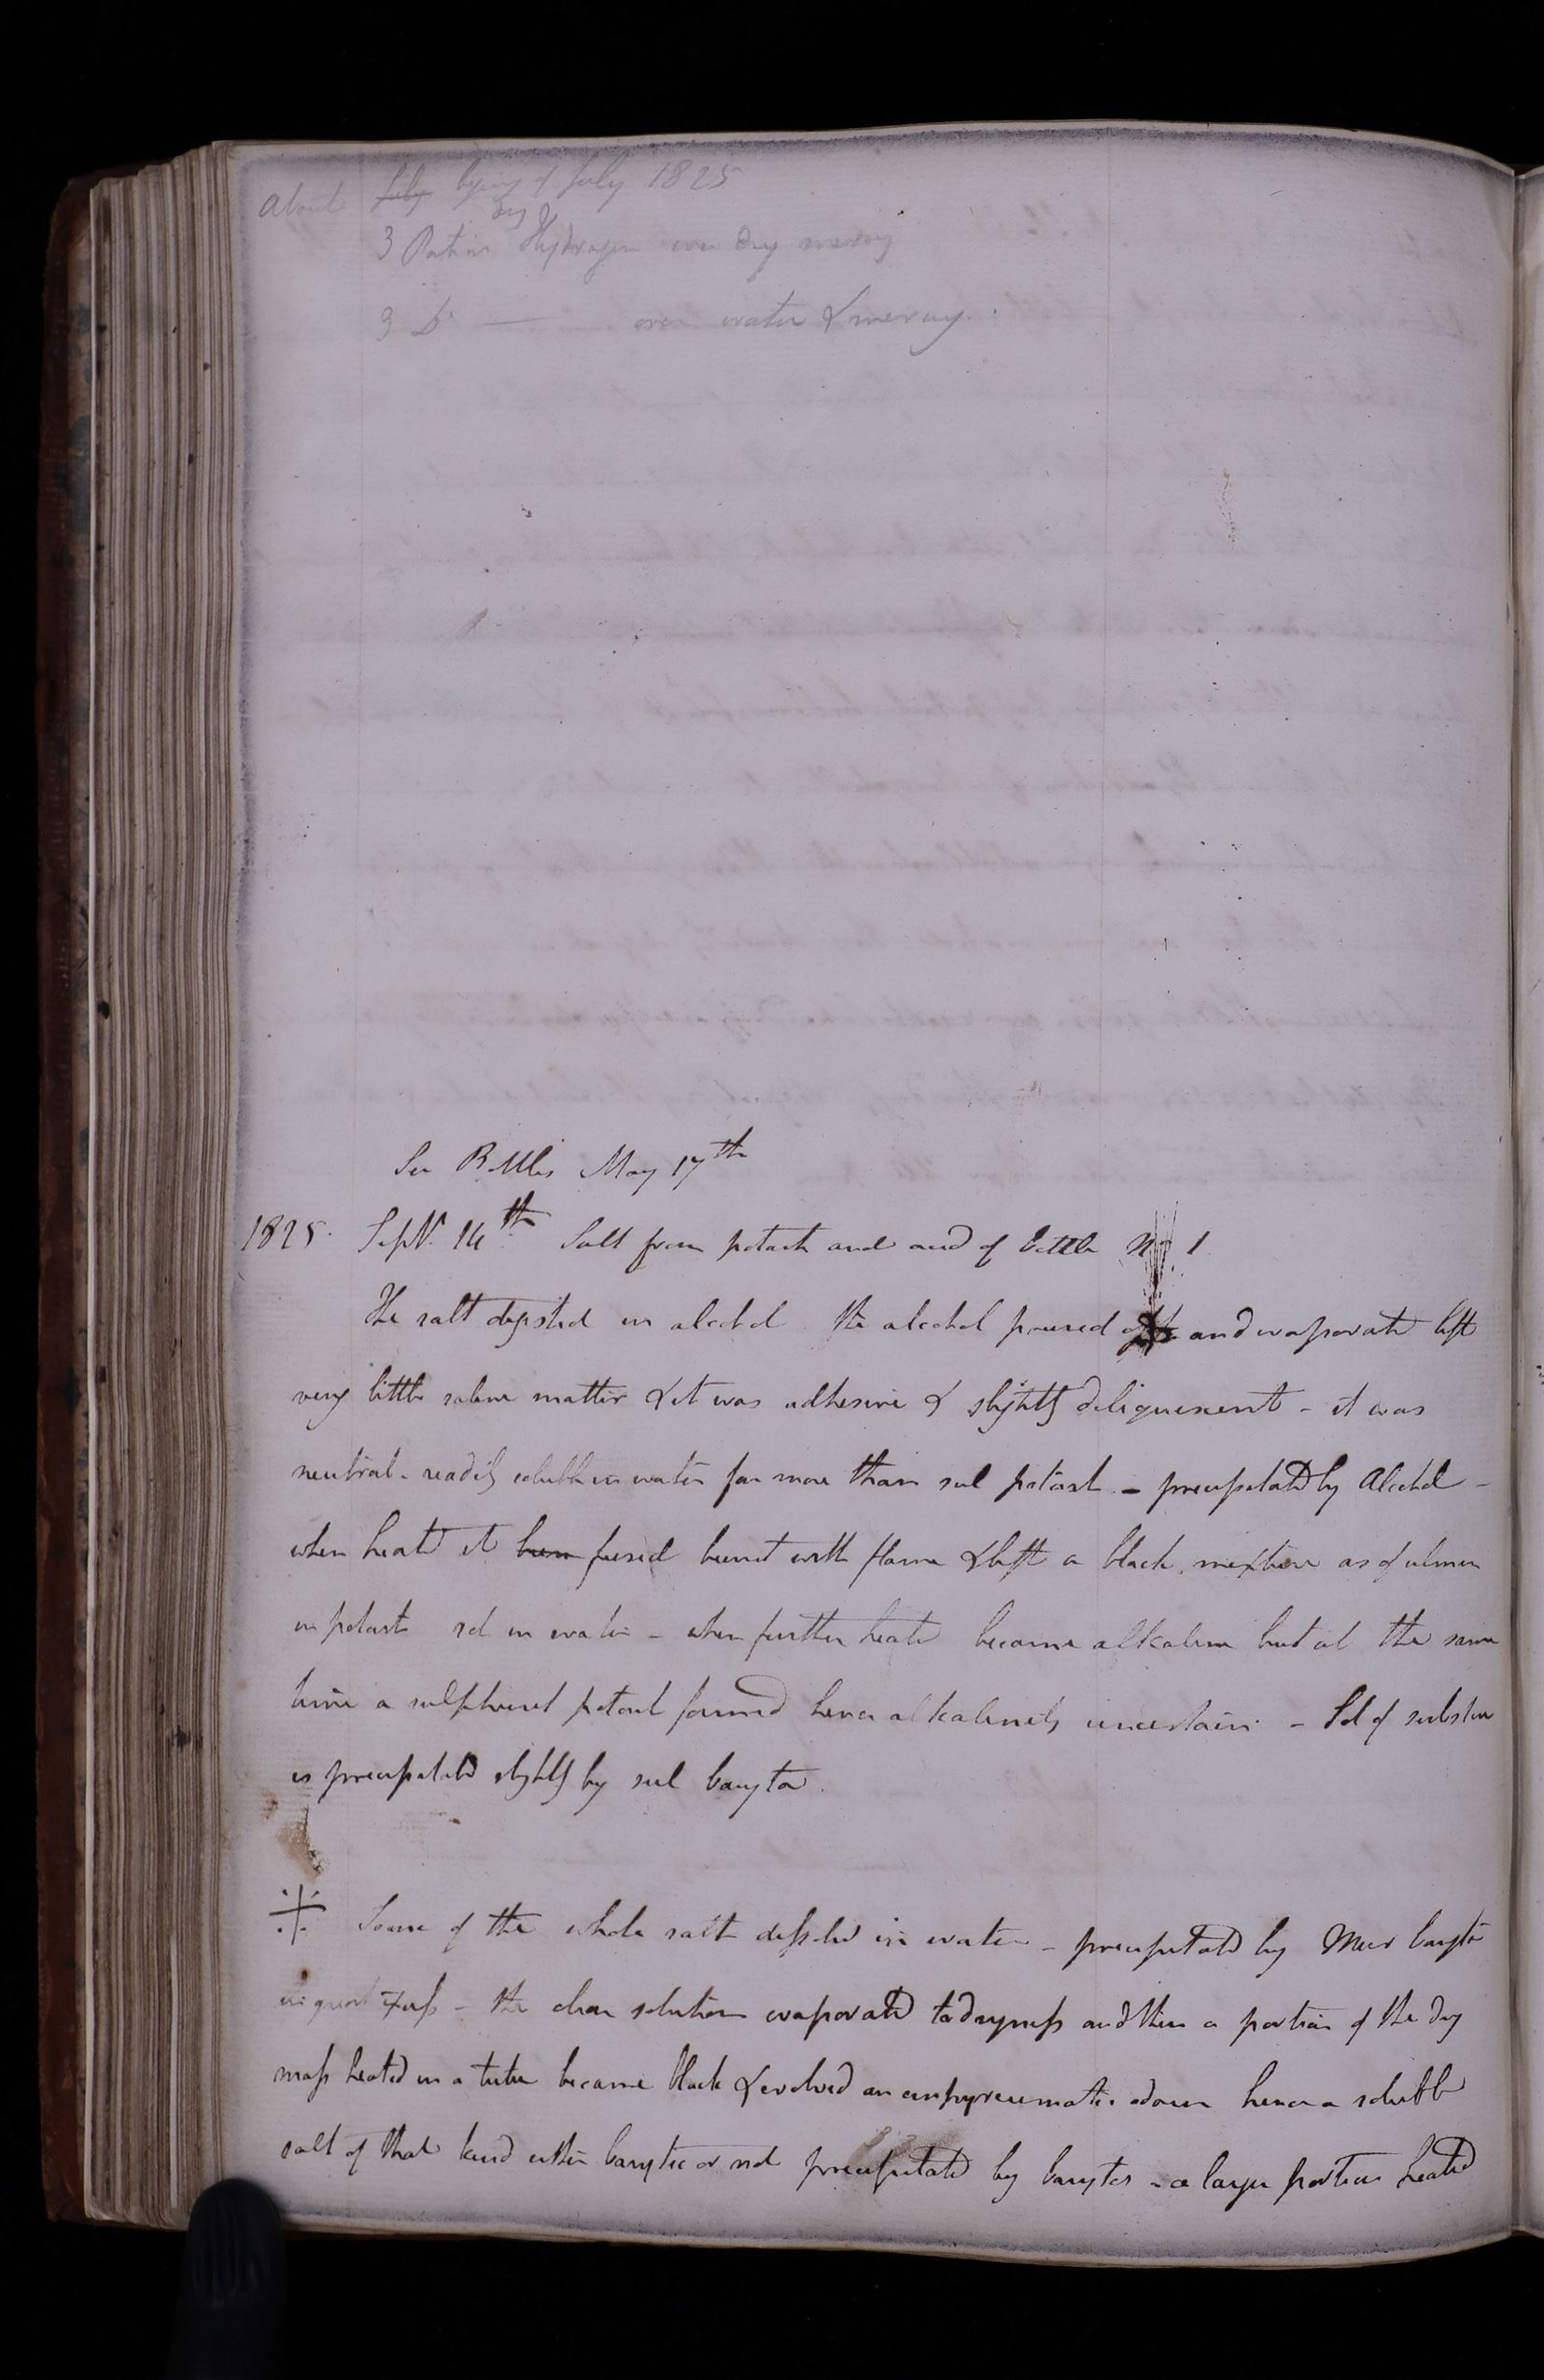 About July beging of July 1825
3 Portions dry Hydrogen over dry mercury
3 Do — over water & mercury.
See Bottles May 17th
1825. Septr. 14th Salt from potash and acid of bottle No. 1
The salt digested in alcohol the alcohol poured off and evaporated left
very little saline matter & it was adhesive & slightly deliquescent - it was
neutral - readily soluble in water far more than sul potash - precipitated by Alcohol -
when heated it burn fused burnt with flame & left a black mixture as of ulmin
in potash sol in water - when further heated became alkaline but at the same
time a sulphuret potash formed hence alkalinity uncertain - Sol of substance
is precipitated slightly by sul baryta.
Some of the whole salt dissolved in water - precipitated by Mur baryta
in great excess - the clear solution evaporated to dryness and then a portion of the dry
mass heated in a tube became black & evolved an empyreumatic odour hence a soluble
salt of that kind either barytic or not precipitated by barytes - a larger portion heated